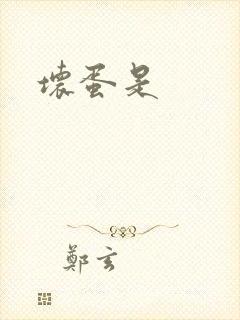 壞蛋是
鄭玄